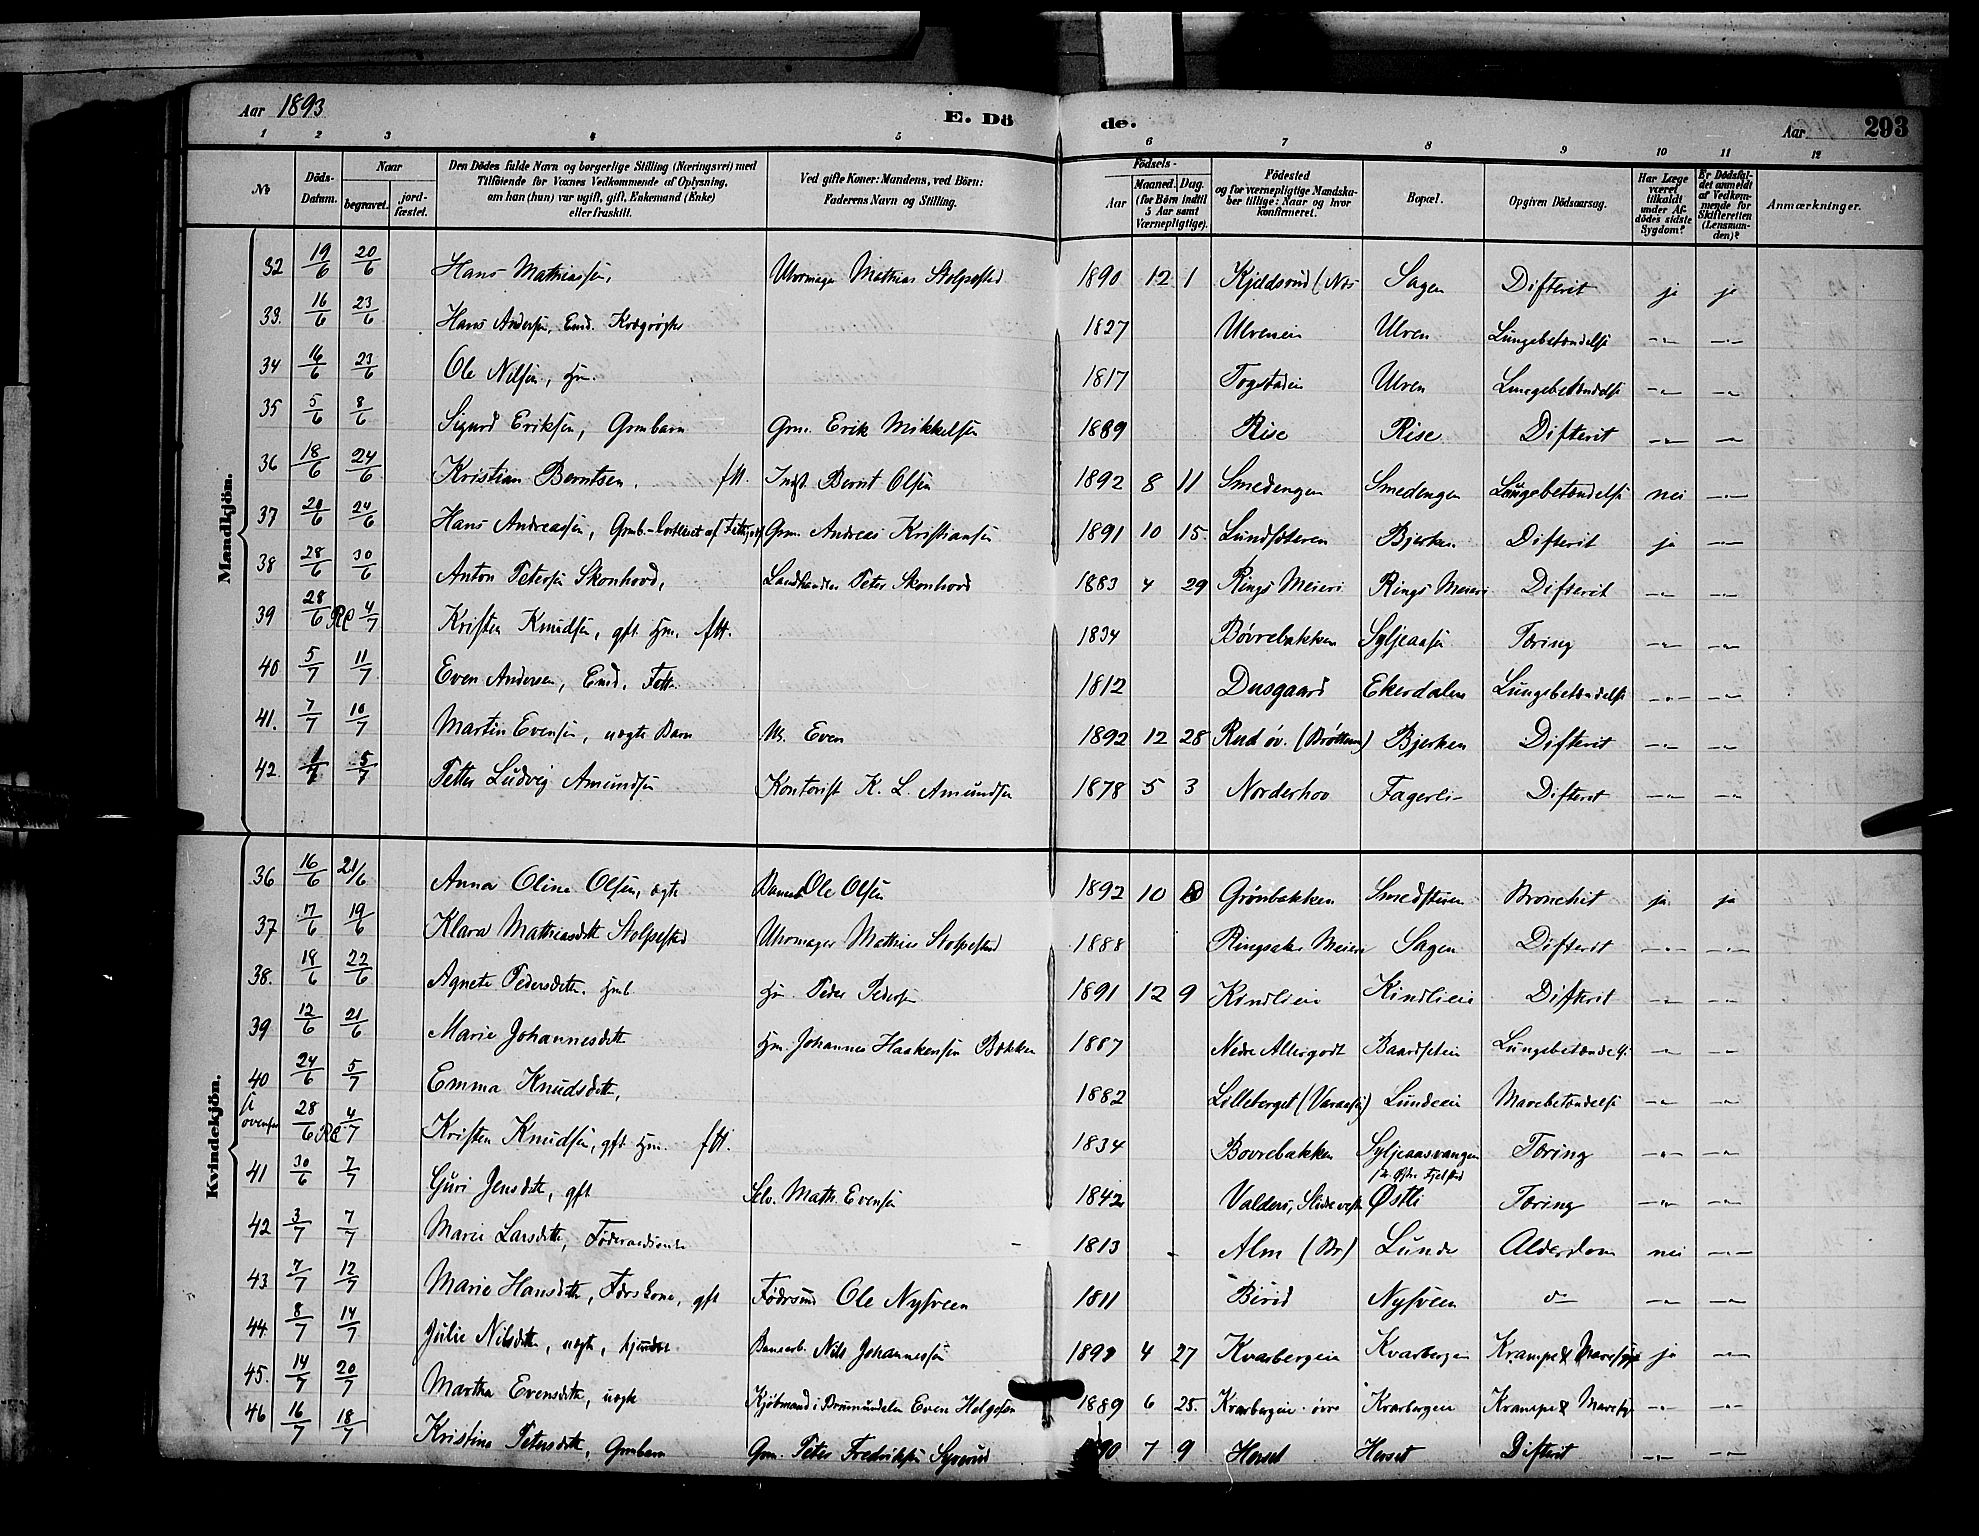 Aar 1893 E. Dö de. Aar 293
1 2 3 4 5 6 7 8 9 10 11 12
No Döds-Datum. Naar begravet. jord-fæstet. Den Dödes fulde Navn og borgerlige Stilling (Næringsvei) med Tilföiende for Voxnes Vedkommende af Oplysning, om han (hun) var ugift, gift, Enkemand (Enke) eller fraskilt. Ved gifte Koner: Mandens, ved Börn: Faderens Navn og Stilling. Födsels- Aar Maaned. Dag. (for Börn indtil 5 Aar samt Værnepligtige). Födested og for værnepligtige Mandskaber tillige: Naar og hvor konfirmeret. Bopæl. Opgiven Dödsaarsag. Har Læge været tilkaldt under Afdödes sidste Sygdom? Er Dödsfaldet anmeldt af Vedkommende for Skifteretten (Lensmanden)? Anmærkninger.
Mandkjön.
32 19/6 20/6 Hans Mathiassen, Uhrmager Mathias Stolpestad 1890 12 1 Kjeldsrud (Nes Sagen Difterit ja ja
33. 16/6 23/6 Hans Andersen, Emd. Kregrøgter 1827 Ulveneie Ulven Lungebetændelse -"- -"-
34 16/6 23/6 Ole Nilsen, Hm. 1817 Togstadeie Ulven Lungebetændelse -"- -"-
35 5/6 8/6 Sigurd Eriksen, Grmbarn Grm. Erik Mikkelsen 1889 Rise Rise Difterit -"- -"-
36 18/6 24/6 Kristian Berntsen, ftt. Indst. Bernt Olsen 1892 8 11 Smedengen Smedengen Lungebetændelse nei -"-
37 20/6 24/6 Hans Andreassen, Grmb. Grm. Andreas Kristiansen 1891 10 15. Lundsæteren Bjerken Difterit ja -"-
38 28/6 30/6 Anton Petersen Skonhovd, Landhandler Peter Skonhovd 1883 4 29 Rings Meieri Rings Meieri Difterit -"- -"-
39 28/6 4/7 Kristen Knudsen, gft Hm. ftt. 1834 Bövrebakken Syljeaasen Tæring -"- -"-
40 5/7 11/7 Even Andersen, Emd. Fatt. 1812 Dusgaard Ekerdalen Lungebetændelse -"- -"-
41. 7/7 10/7 Martin Evensen, uægte Barn U. Even 1892 12 28 Rud øv. (Brøttum) Bjerken Difterit -"- -"-
42. 1/7 5/7 Petter Ludvig Amundsen Kontorist K. L. Amundsen 1878 5 3 Norderhov Fagerli Difterit -"- -"-
Kvindekjön.
36 16/6 21/6 Anna Oline Olsen, ægte Ole Olsen 1892 10 10 Grönbakken Smedstuen Bronchit ja ja
37 7/6 19/6 Klara Mathiasdtt Stolpestad Uhrmager Mathias Stolpestad 1888 Ringsaker Meieri Sagen Difterit -"- -"-
38. 18/6 22/6 Agnete Pedersdtt. Hmb. Hm. Peder Pedersen 1891 12 9 Kindlieie Kindlieie Difterit -"- -"-
39 12/6 21/6 Marie Johannesdtt Hm. Johannes Haakensen Bakken 1887 Nedre Allergodt Baardseteie Lungebetændelse -"- -"-
40 24/6 5/7 Emma Knudsdtt, 1882 Lilleberget (Vaaraasen) Lundeeie Mavebetændelse -"- -"-
ovenfor 28/6 4/7 Kristen Knudsen, gft Hm. ftt. 1834 Bovrebakken Syljeaasvangen Tæring -"- -"-
41 30/6 7/7 Guri Jensdtt, gft Selv. Math. Evensen 1842 Valders, Slidre Østli Tæring -"- -"-
42 3/7 7/7 Marie Larsdtt, Føderaadsenke 1813 Alm (Br) Lunde Alderdom nei -"-
43 7/7 12/7 Marie Hansdtt, gft Ole Nysveen 1811 Birid Nysveen -"- -"- -"-
44 8/7 14/7 Julie Nilsdtt, uægte Nils Johannessen 1892 4 27 Kvarbergeie Kvarbergeie Krampe & Mavesyge ja -"-
45. 14/7 20/7 Martha Evensdtt, uægte Kjøbmand i Brumunddalen Even Helgesen 1889 6 25. Kvarbergeie øvre Kvarbergeie Krampe & Mavesyge -"- -"-
46 16/7 18/7 Kristine Petersdtt, Grmbarn Grm. Peter Fredriksen Syverud 1890 7 9 Horset Horset Difterit -"- -"-